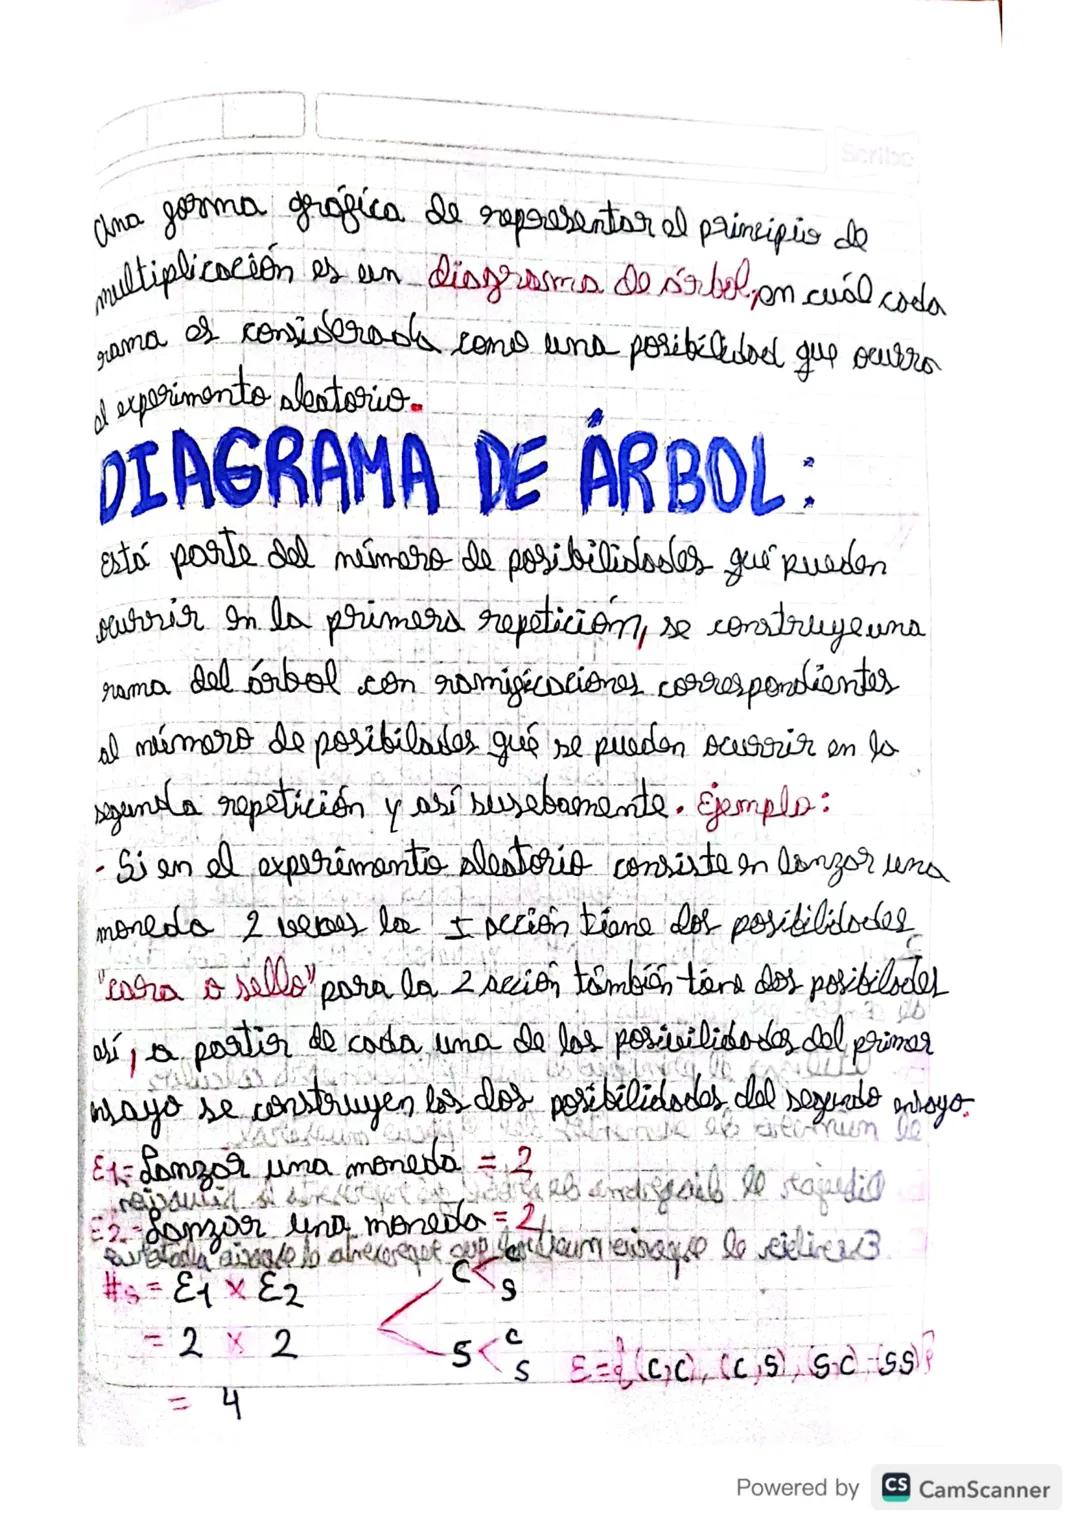 Scribe
Una forma gráfica de representar el principio de
multiplicación es un diagrama de árbol, en cuál cada
rama es considerada como una posibilidad que ocurra
el experimento aleatorio.
DIAGRAMA DE ÁRBOL:
Está parte del número de posibilidades qué pueden
ocurrir en la primera repetición, se construye una
rama del árbol con ramificaciones correspondientes
al número de posibilades qué se pueden ocurrir en la
segunda repetición y así susebamente. Ejemplo:
- Si en el experimento aleatorio consiste en lanzar una
moneda 2 veces la 1 acción tiene dos posibilidades
"cara o sello" para la 2 acción también tiene dos posibilades
así, a partir de cada una de las posivilidades del primer
ensayo se construyen los dos posibilidades del segundo ensayo.
E1 = Lanzar una moneda = 2
E2 = Lanzar una moneda = 2
#s = E1 x E2
= 2 x 2
= 4
C < C
S
S < C
S
E = {(C,C), (C,S), (S,C) (SS)}
Powered by CS CamScanner